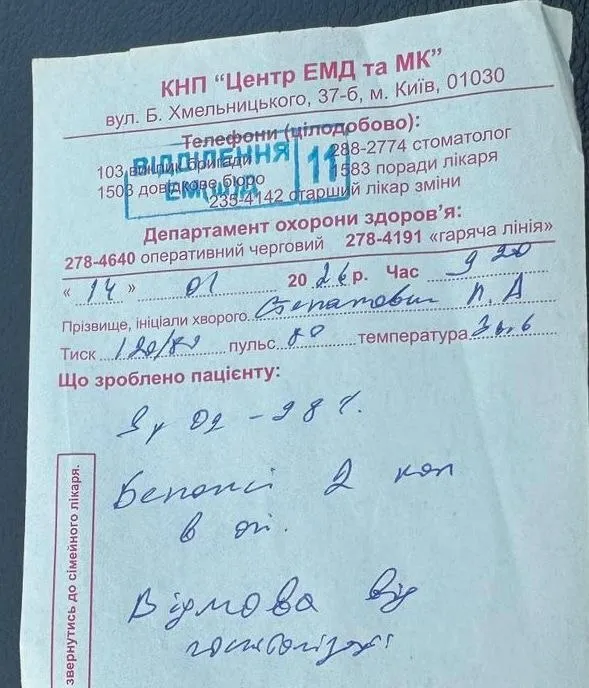 КНП “Центр ЕМД та МК”
вул. Б. Хмельницького, 37-б, м. Київ, 01030
Телефони (цілодобово):
103 виклик бригади 288-2774 стоматолог
1503 довідкове бюро 1583 поради лікаря
235-4142 старший лікар зміни
ВІДДІЛЕННЯ 11
Департамент охорони здоров’я:
278-4640 оперативний черговий 278-4191 «гаряча лінія»
“ 14 ” 01 2026 р. Час 9 20
Прізвище, ініціали хворого П. А
Тиск 120/80 пульс 80 температура 36.6
Що зроблено пацієнту:
O2 - 98 %.
2 кап
в
Відмова від
госпіталізації
звернутись до сімейного лікаря.